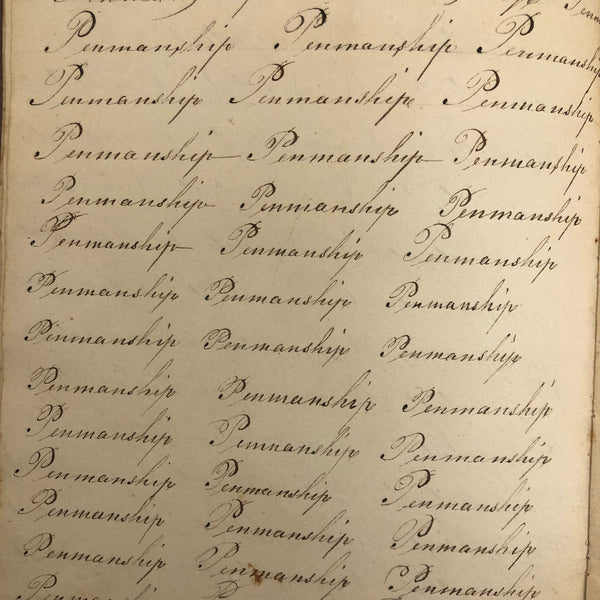 Penmanship Penmanship Penmanship
Penmanship Penmanship Penmanship
Penmanship Penmanship Penmanship
Penmanship Penmanship Penmanship
Penmanship Penmanship Penmanship
Penmanship Penmanship Penmanship
Penmanship Penmanship Penmanship
Penmanship Penmanship Penmanship
Penmanship Penmanship Penmanship
Penmanship Penmanship Penmanship
Penmanship Penmanship Penmanship
Penmanship Penmanship Penmanship